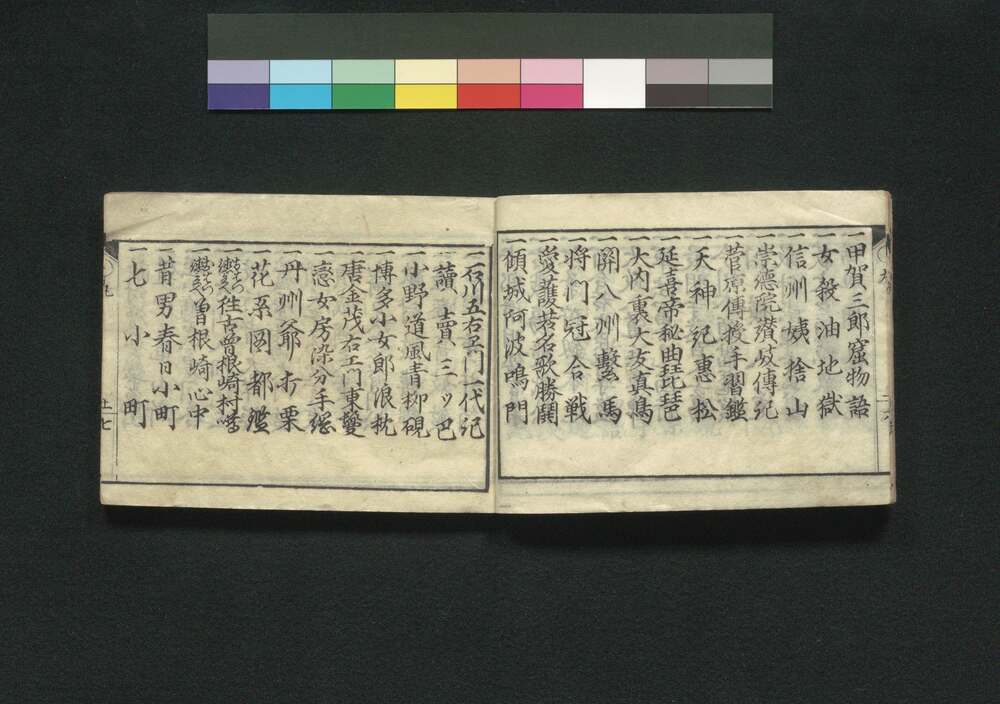 一甲賀三郎窟物語
一女殺油地獄
一信州姨捨山
一崇德院讃岐傳記
一菅原傳授手習鑑
一天神記惠松
一大内裏大友真鳥
一延喜帝秘曲琵琶
一關八州繫馬
一将門冠合戦
一愛護若名歌勝鬨
一傾城阿波鳴門
一石川五右衛門一代記
一讀賣三ッ巴
一小野道風青柳硯
一博多小女郎浪枕
唐金茂右エ門東鬘
一戀女房染分手綱
一丹州爺打栗
一花系圖都鑑
一往古曽根崎村噂
一曽根崎心中
一昔男春日小町
一七小町